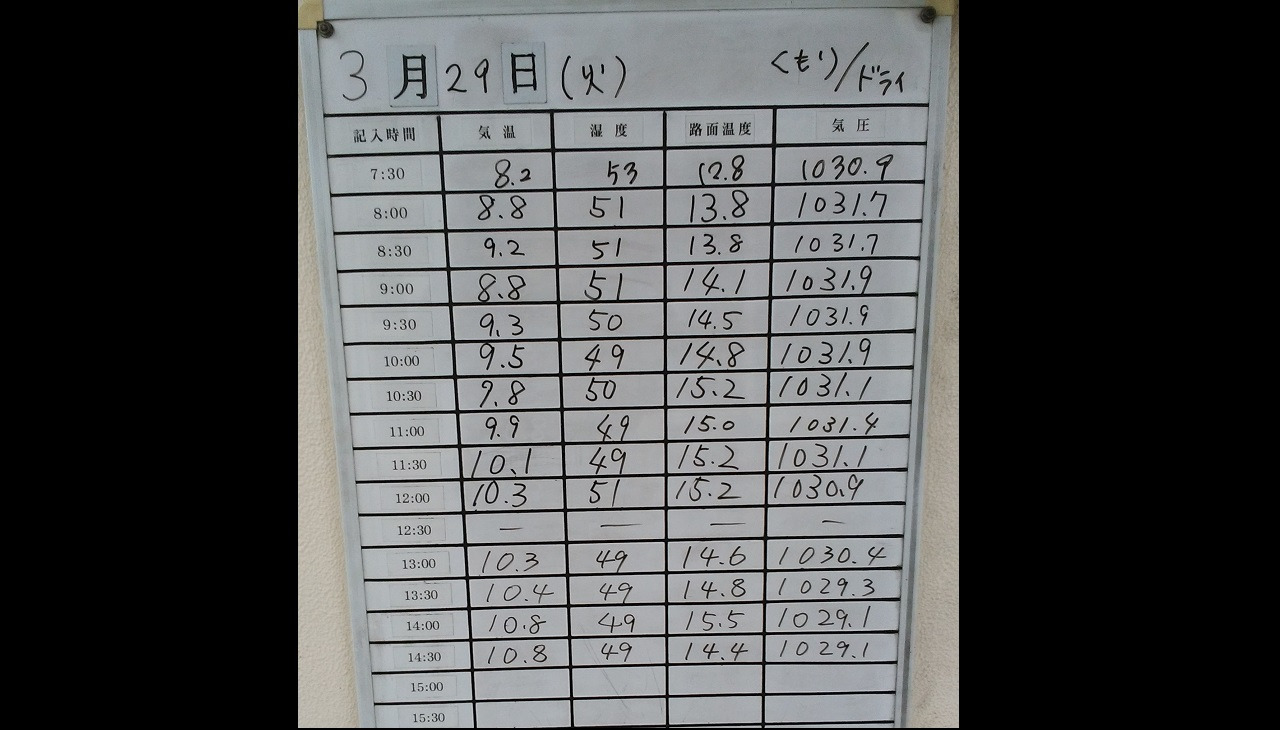 3月29日(火) くもり/ドライ
記入時間 気温 湿度 路面温度 気圧
7:30 8.2 53 12.8 1030.9
8:00 8.8 51 13.8 1031.7
8:30 9.2 51 13.8 1031.7
9:00 8.8 51 14.1 1031.9
9:30 9.3 50 14.5 1031.9
10:00 9.5 49 14.8 1031.9
10:30 9.8 50 15.2 1031.1
11:00 9.9 49 15.0 1031.4
11:30 10.1 49 15.2 1031.1
12:00 10.3 51 15.2 1030.9
12:30 — — — —
13:00 10.3 49 14.6 1030.4
13:30 10.4 49 14.8 1029.3
14:00 10.8 49 15.5 1029.1
14:30 10.8 49 14.4 1029.1
15:00
15:30